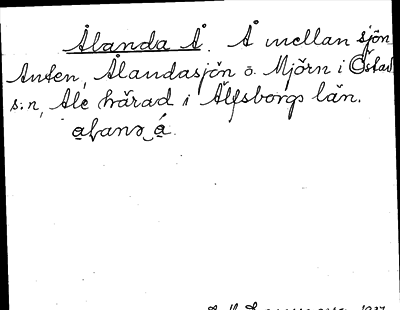 Ålanda Å. Å mellan sjön
Anten, Ålandasjön o. Mjörn i Östad
s:n, Ale härad i Älfsborgs län.